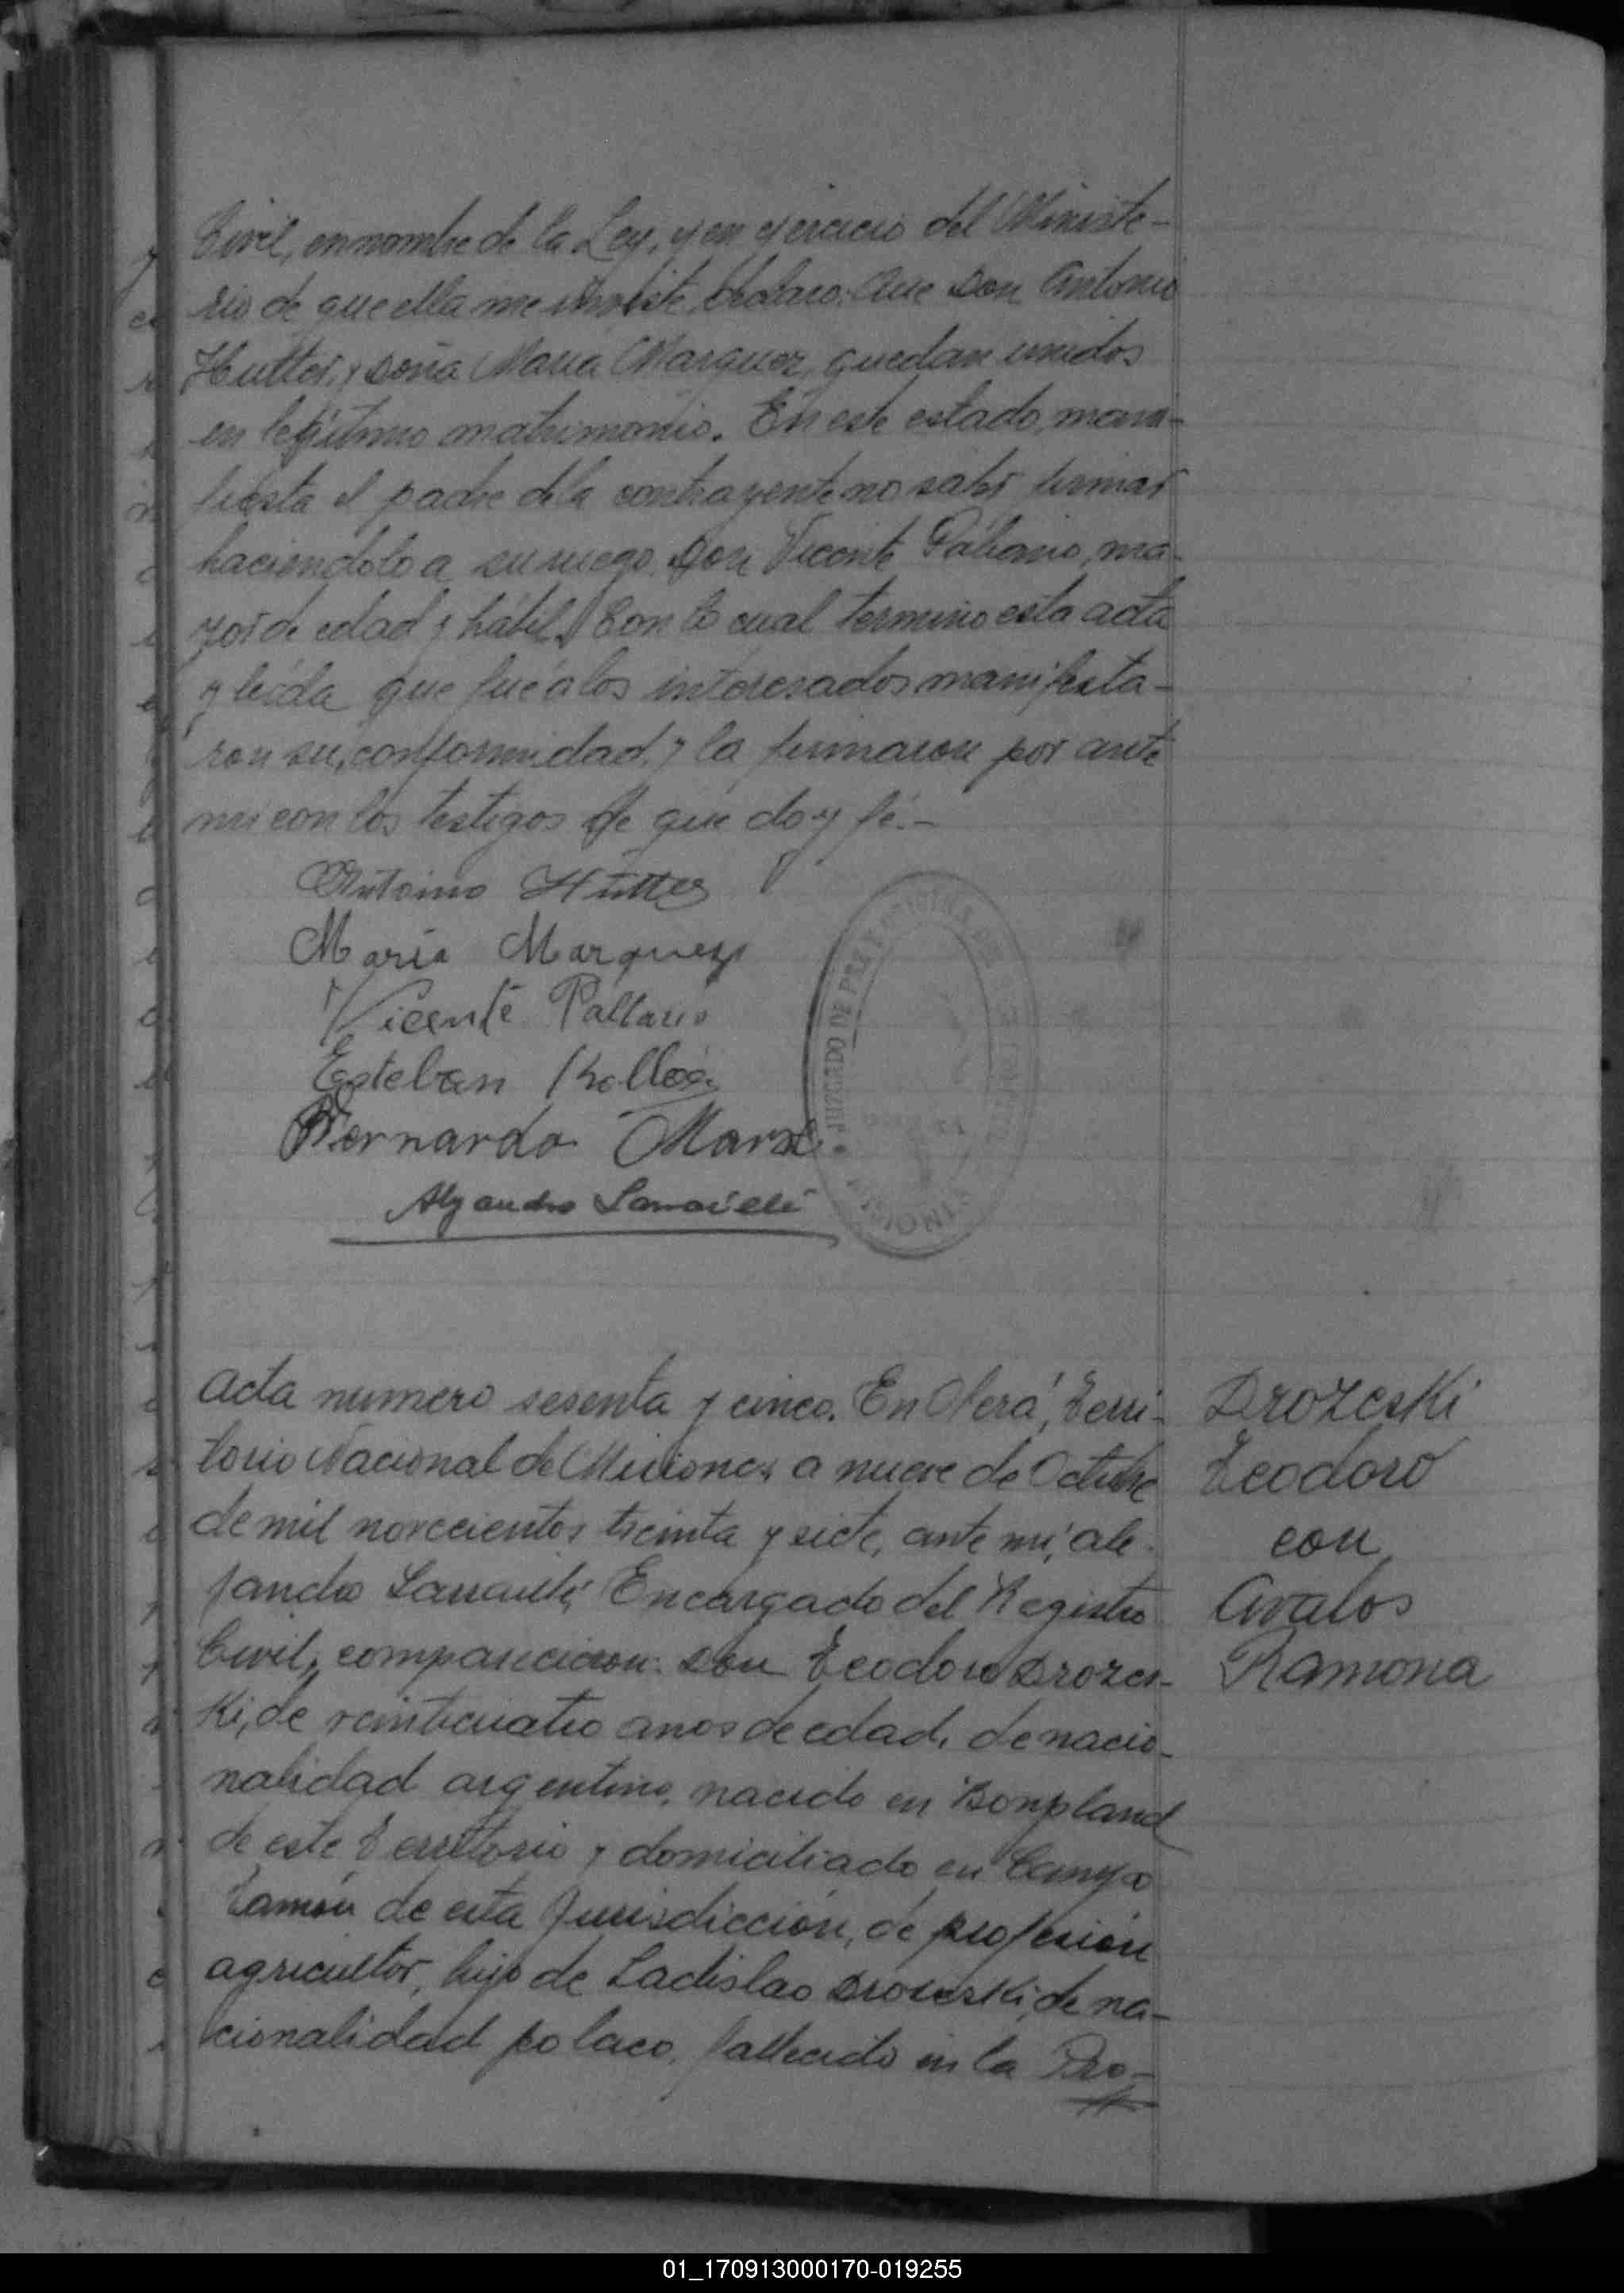 Civil, en nombre de la Ley, y en ejercicio del Ministe-
rio de que ella me inviste, declaro: Que Don Antonio
Hutter, y Doña Maria Marquez, quedan unidos
en legitimo matrimonio. En este estado, mani-
fiesta el padre de la contrayente no saber firmar
haciendolo a su ruego Don Vicente Paliario, ma-
yor de edad y hábil. Con lo cual termino esta acta
y leida que fué a los interesados manifesta-
ron su conformidad, y la firmaron por ante
mi con los testigos de que doy fé.-
Antonio Hutter
Maria Marquez
Vicente
Esteban
Bernardo Marx
Alejandro
JUZGADO DE PAZ
MISIONES
Acta numero sesenta y cinco. En Oberá, Terri-
torio Nacional de Misiones a nueve de Octubre
de mil novecientos treinta y siete, ante mi, Ale-
jandro Encargado del Registro
Civil, comparecieron: Don Teodoro Drozes-
ki, de veinticuatro anos de edad, de nacio-
nalidad argentino, nacido en Bonpland
de este Territorio y domiciliado en Campo
Ramón de esta Jurisdicción, de profesión
agricultor, hijo de Ladislao Drozeski, de na-
cionalidad polaco, fallecido en la Pro-
Drozeski
Teodoro
con
Avalos
Ramona
01_170913000170-019255